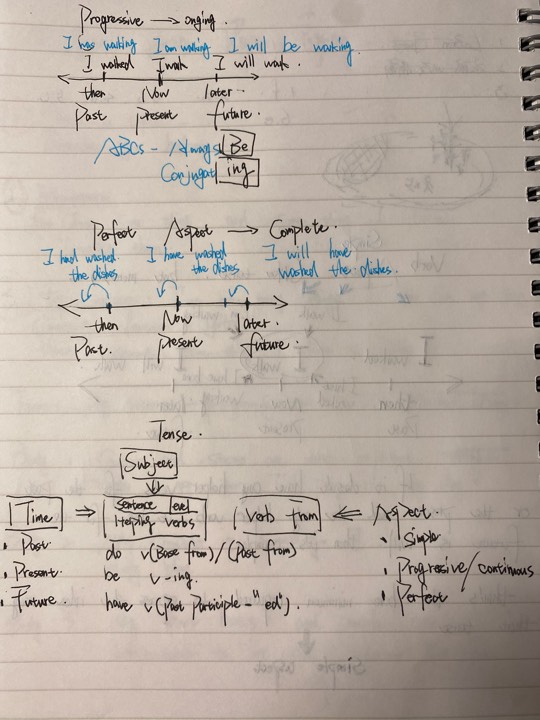 Progressive → onging.
I was walking I am walking I will be walking.
I walked I walk I will walk.
then Now later.
Past present future.
ABCs - Always Be
Conjugating
Perfect Aspect → Complete.
I had washed the dishes I have washed the dishes I will have washed the dishes.
then Now later.
Past. present future.
Tense.
Subject
Time ⇒ Sentence level Helping verbs Verb from ⇐ Aspect.
• Past do v(Base from)/(Past from) • Simple
• Present. be v-ing. • Progressive/continuous
• Future. have v(Past Participle-"ed"). • Perfect